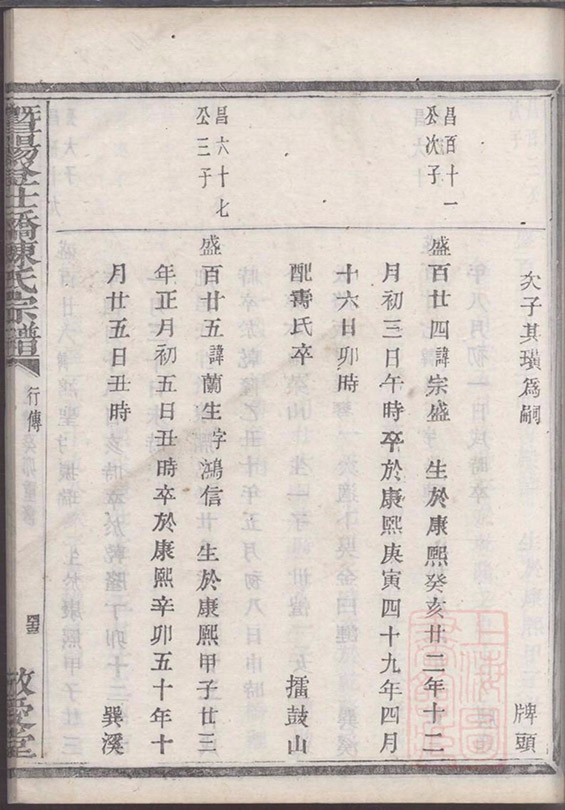 次子其璜爲嗣 牌頭
昌百十一
公次子
盛百廿四諱宗盛 生於康熙癸亥廿二年十二
月初三日午時卒於康熙庚寅四十九年四月
十六日卯時
配壽氏卒 擂鼓山
昌六十七
公三子
盛百廿五諱蘭生字鴻信 生於康熙甲子廿三
年正月初五日丑時卒於康熙辛卯五十年十
月廿五日丑時 巽溪
暨陽登仕橋陳氏宗譜
行傳
敬愛堂